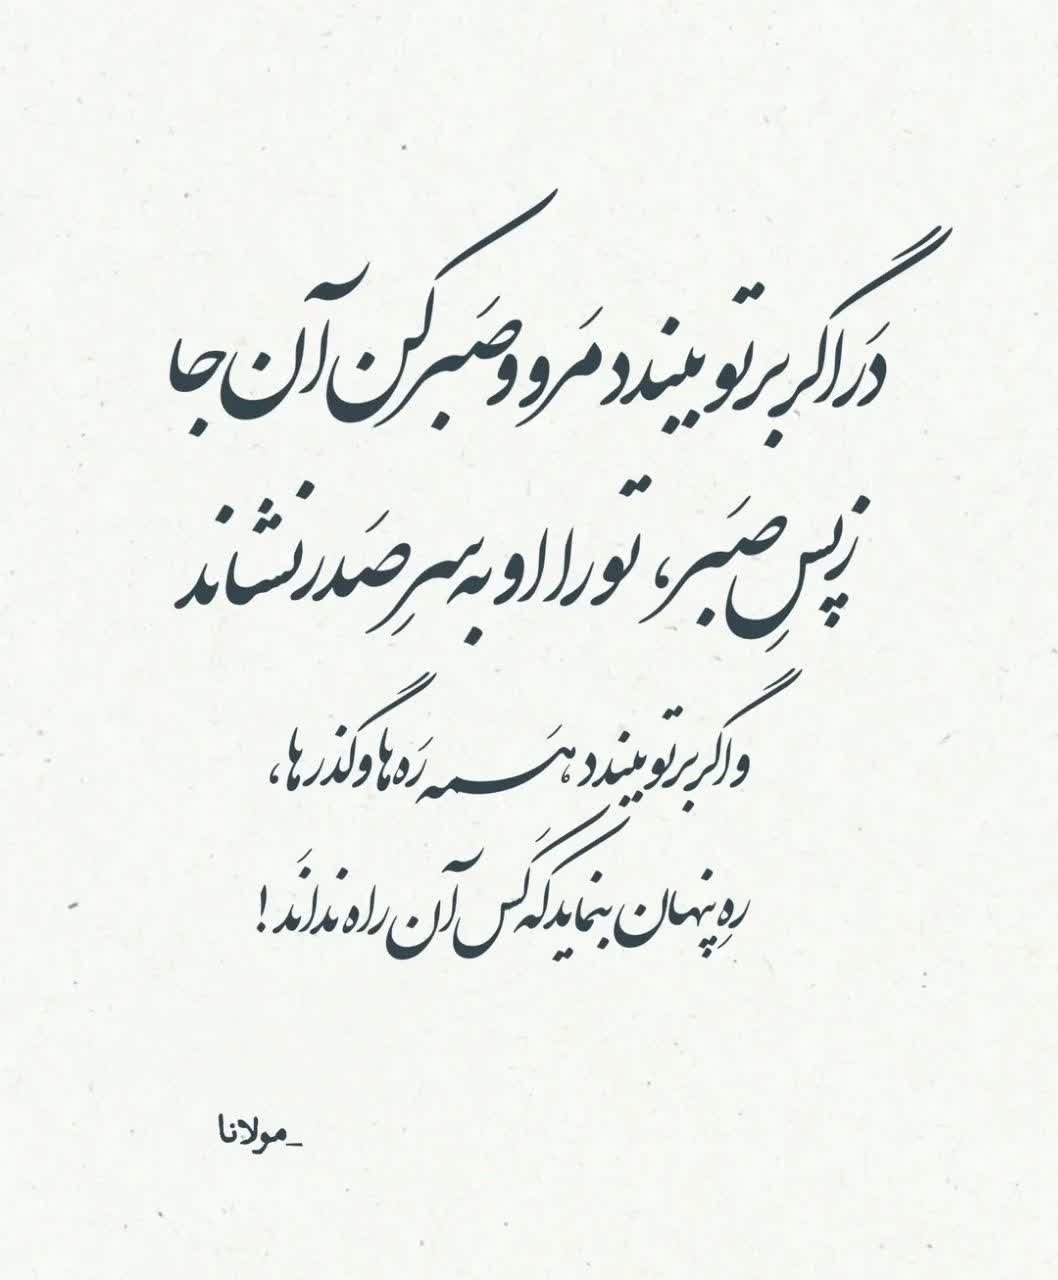 دَر اگر بر تو ببندد مَرو و صَبر کن آن جا
ز پسِ صَبر، تو را او به سرِ صَدر نشاند
و اگر بر تو ببندد همه رَه‌ها و گذرها،
رهِ پنهان بنماید که کَس آن راه نداند!
_مولانا